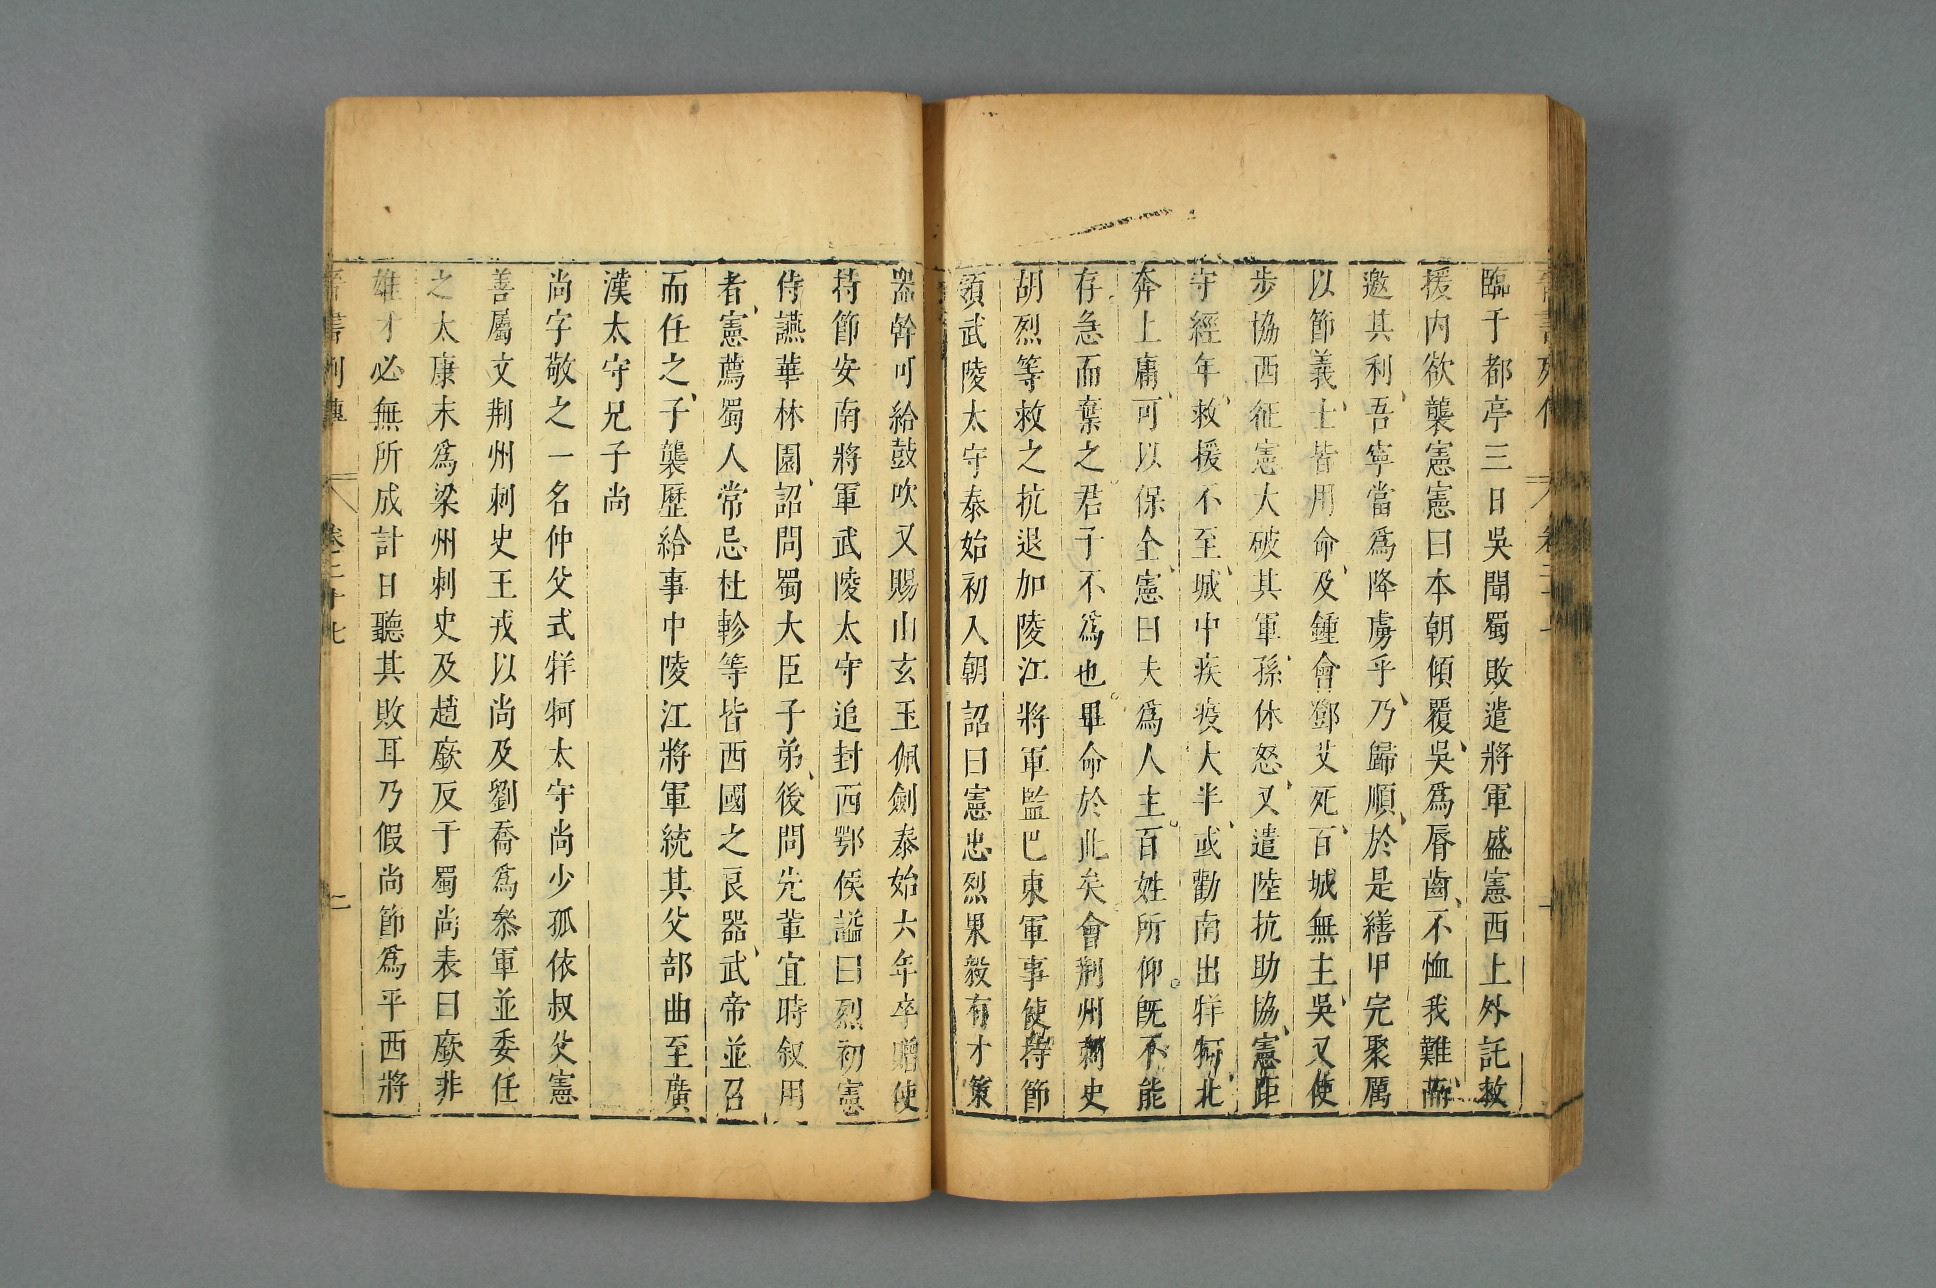 晉書列傳
臨于都亭三日吳聞蜀敗遣將軍盛憲西上外託救
援内欲襲憲憲曰本朝傾覆吳爲脣齒不恤我難而
邀其利吾寧當爲降虜乎乃歸順於是繕甲完聚厲
以節義士皆用命及鍾會鄧艾死百城無主吳又使
步協西征憲大破其軍孫休怒又遣陸抗助協憲距
守經年救援不至城中疾疫大半或勸南出牂牁北
奔上庸可以保全憲曰夫爲人主百姓所仰既不能
存急而棄之君子不爲也畢命於此矣會荆州刺史
胡烈等救之抗退加陵江將軍監巴東軍事使持節
領武陵太守泰始初入朝詔曰憲忠烈果毅有才策
器幹可給鼓吹又賜山玄玉佩劍泰始六年卒贈使
持節安南將軍武陵太守追封西鄂侯謚曰烈初憲
侍讌華林園詔問蜀大臣子弟後問先輩宜時叙用
者憲薦蜀人常忌杜軫等皆西國之良器武帝並召
而任之子襲歷給事中陵江將軍統其父部曲至廣
漢太守兄子尚
尚字敬之一名仲父式牂牁太守尚少孤依叔父憲
善屬文荆州刺史王戎以尚及劉喬爲叅軍並委任
之太康末爲梁州刺史及趙廞反于蜀尚表曰廞非
雄才必無所成計日聽其敗耳乃假尚節爲平西將
晉書列傳 卷二十七 二